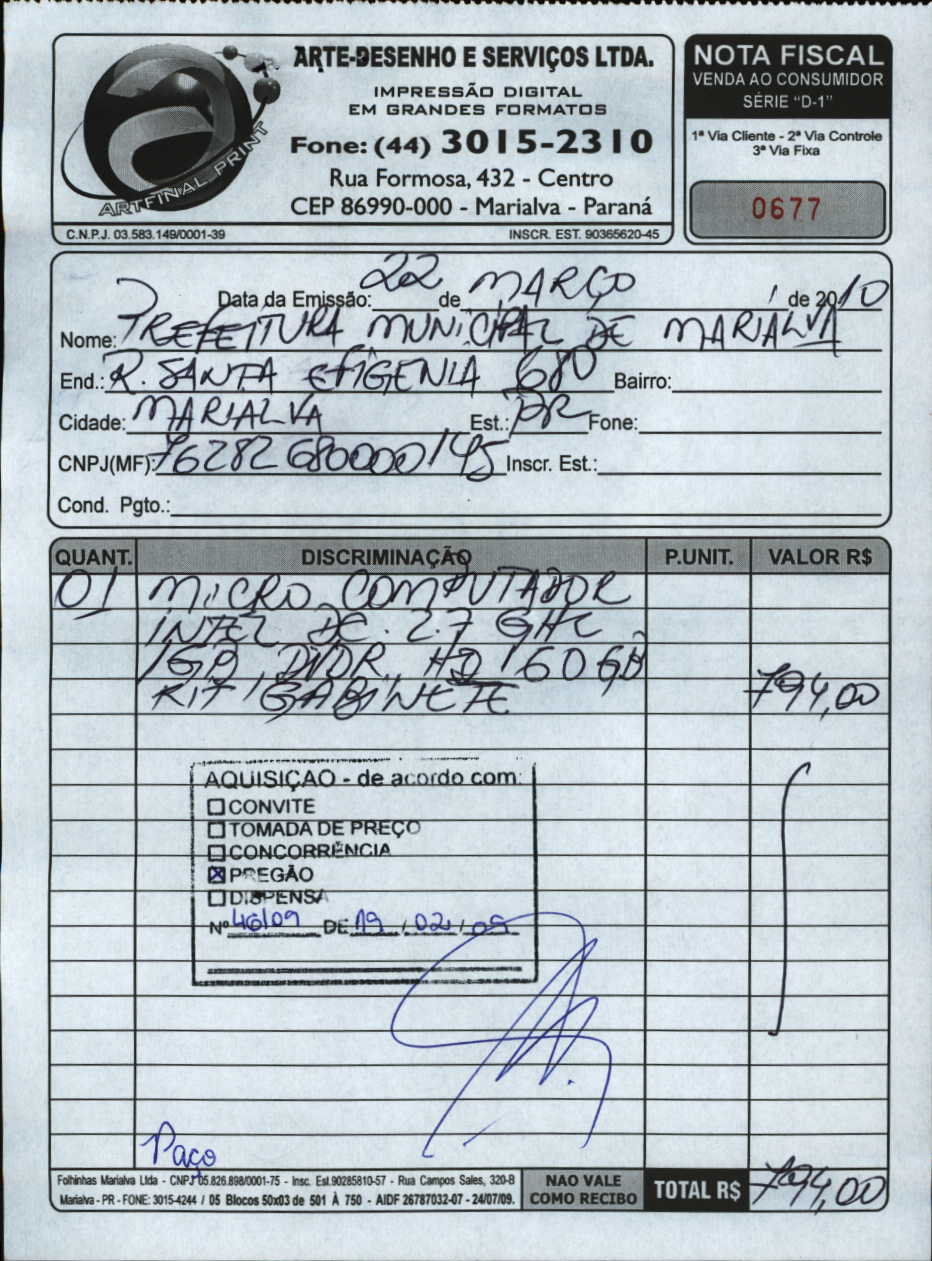 ARTFINAL PRINT
ARTE-DESENHO E SERVIÇOS LTDA.
IMPRESSÃO DIGITAL
EM GRANDES FORMATOS
Fone: (44) 3015-2310
Rua Formosa, 432 - Centro
CEP 86990-000 - Marialva - Paraná
C.N.P.J. 03.583.149/0001-39
INSCR. EST. 90365620-45
NOTA FISCAL
VENDA AO CONSUMIDOR
SÉRIE “D-1”
1ª Via Cliente - 2ª Via Controle
3ª Via Fixa
0677
Data da Emissão: 22 de MARÇO de 2010
Nome: PREFEITURA MUNICIPAL DE MARIALVA
End.: R. SANTA EFIGENIA 680 Bairro:
Cidade: MARIALVA Est.: PR Fone:
CNPJ(MF): 76282680000/45 Inscr. Est.:
Cond. Pgto.:
QUANT. DISCRIMINAÇÃO P.UNIT. VALOR R$
01 MICRO COMPUTADOR
INTEL DE 2.7 GHC
1GB, DDR, HD 160GB
KIT GABINETE 794,00
AQUISIÇAO - de acordo com:
CONVITE
TOMADA DE PREÇO
CONCORRÊNCIA
X PREGÃO
DISPENSA
Nº 46/09 DE 19 / 02 / 09
Paço
Folhinhas Marialva Ltda - CNPJ 05.826.898/0001-75 - Insc. Est.90285810-57 - Rua Campos Sales, 320-B
Marialva - PR - FONE: 3015-4244 / 05 Blocos 50x03 de 501 À 750 - AIDF 26787032-07 - 24/07/09.
NAO VALE
COMO RECIBO
TOTAL R$ 794,00